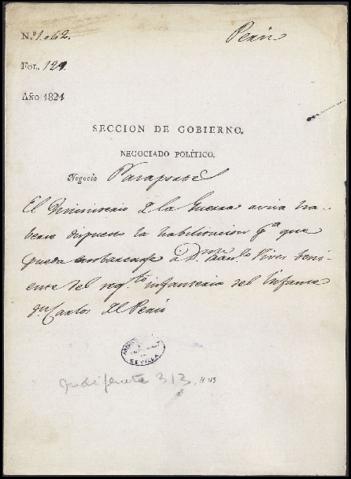 N.º 1.062.
Perú
Fol. 121.
Año 1821
SECCION DE GOBIERNO.
NEGOCIADO POLÍTICO.
Negocio Pasaporte
El Ministerio de la Guerra avisa ha-
berse dispuesto la habilitacion p.ª que
pueda embarcarse á D.n Vives teni-
ente del reg.to infanteria del Infante
d.n Carlos del Perú
SEVILLA
Indiferente 313